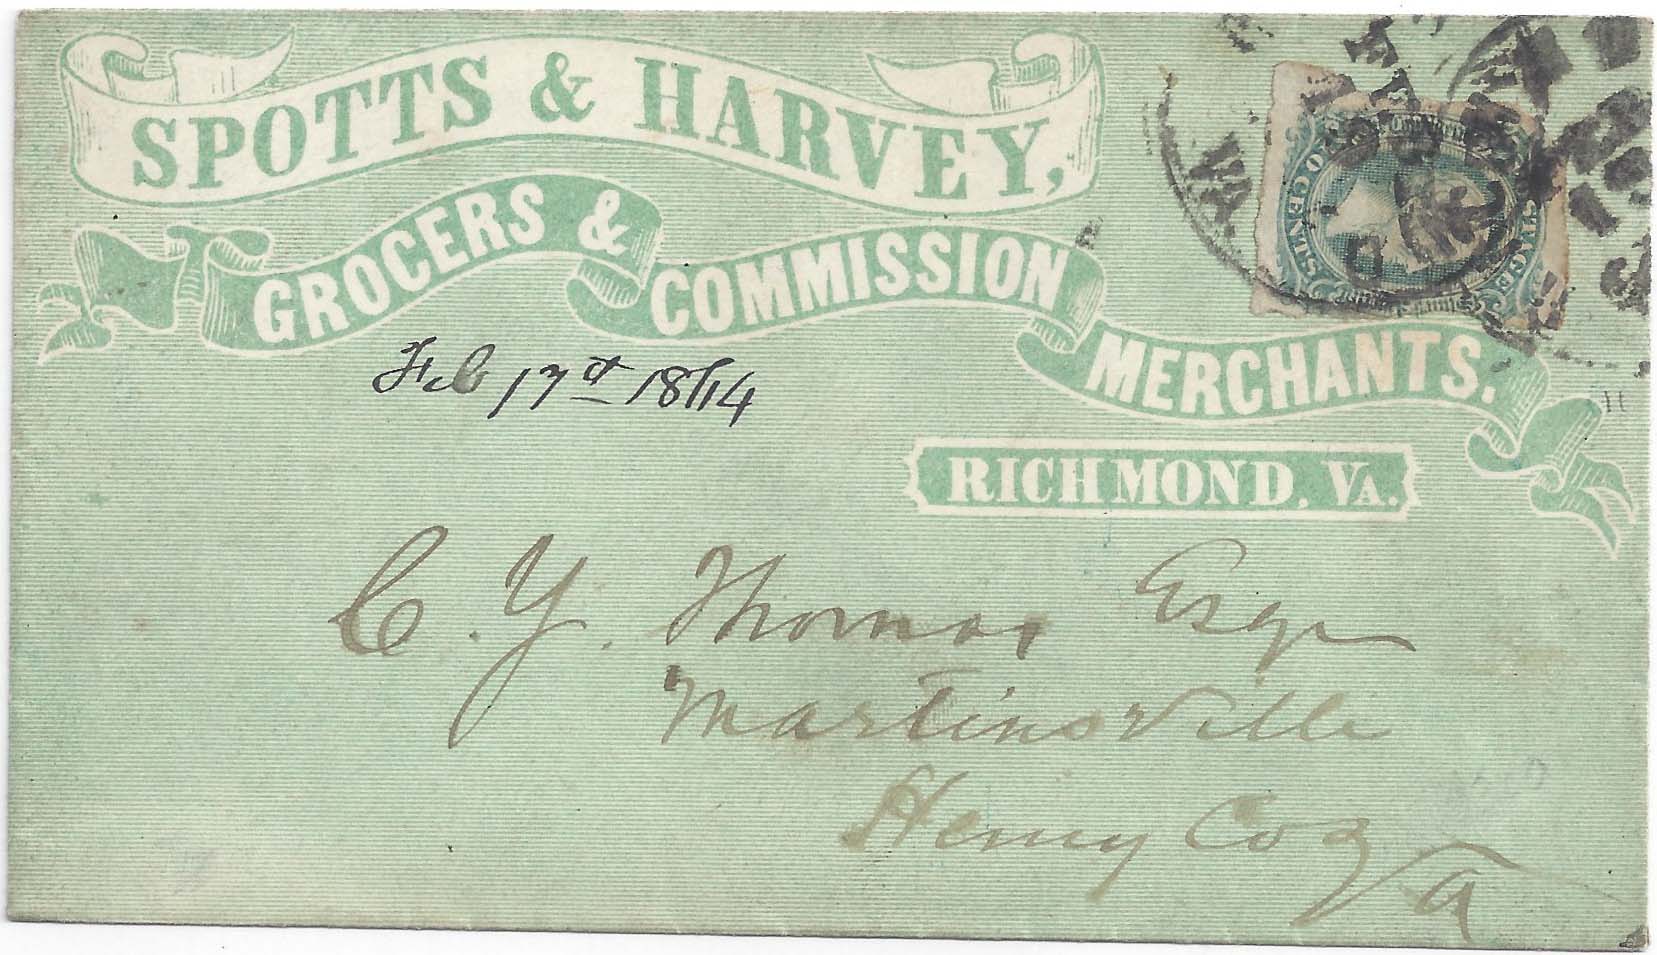 SPOTTS & HARVEY,
GROCERS & COMMISSION MERCHANTS.
RICHMOND, VA.
VA.
FEB
Feb 17
C. Y. Thomas Esqr
Martinsville
Henry Co
Va